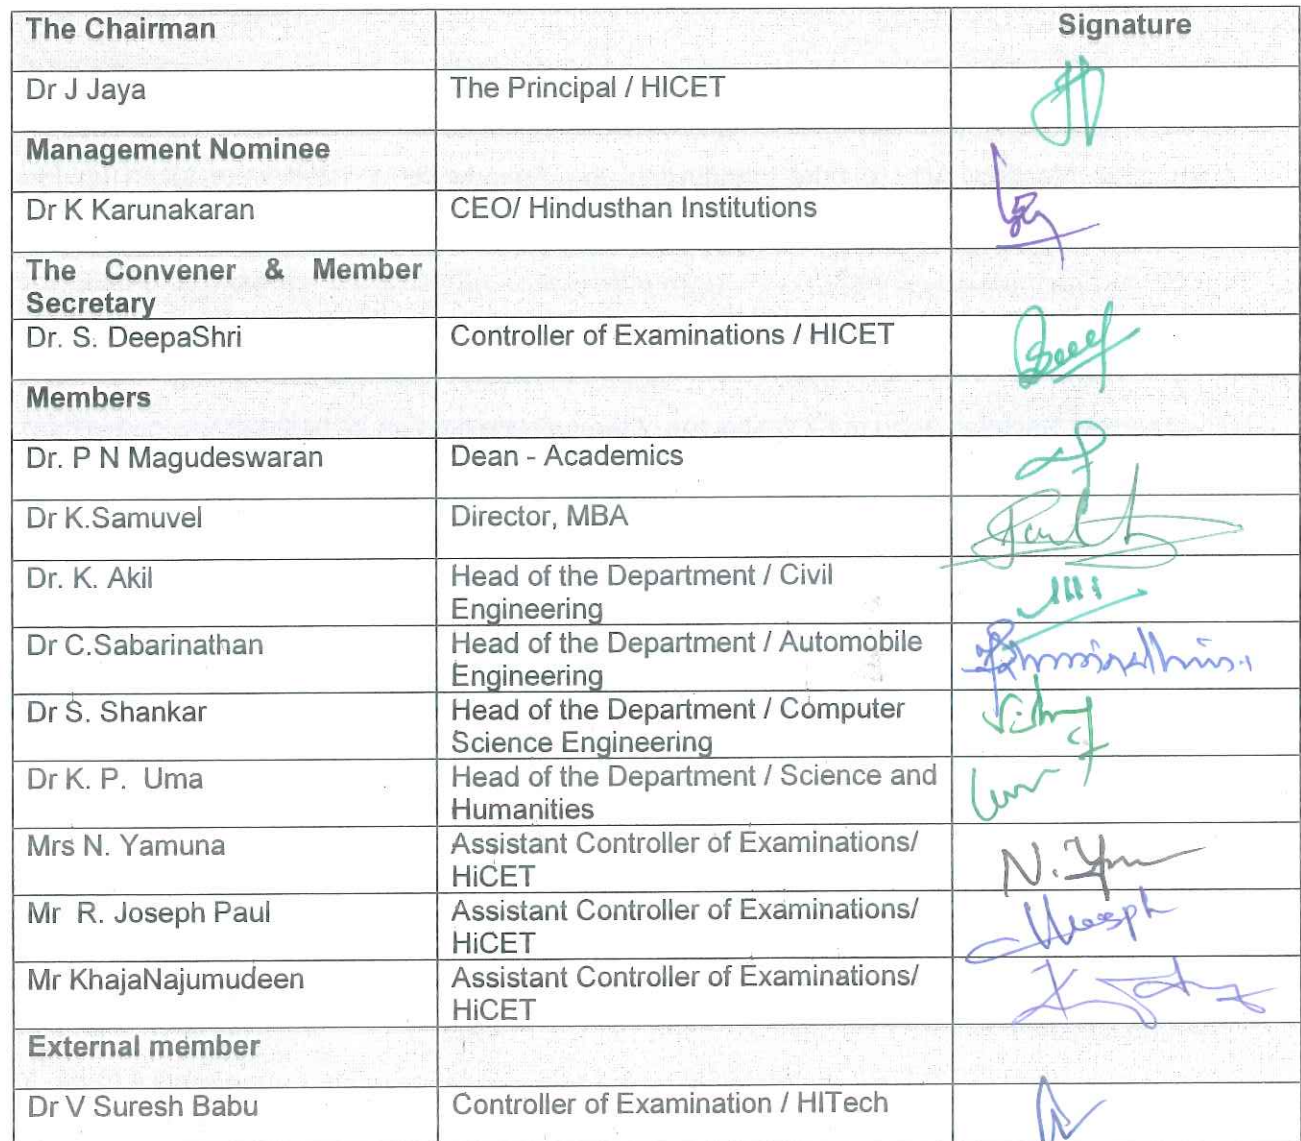 The Chairman Signature
Dr J Jaya The Principal / HICET
Management Nominee
Dr K Karunakaran CEO/ Hindusthan Institutions
The Convener & Member
Secretary
Dr. S. DeepaShri Controller of Examinations / HICET
Members
Dr. P N Magudeswaran Dean - Academics
Dr K.Samuvel Director, MBA
Dr. K. Akil Head of the Department / Civil
Engineering
Dr C.Sabarinathan Head of the Department / Automobile
Engineering
Dr S. Shankar Head of the Department / Computer
Science Engineering
Dr K. P. Uma Head of the Department / Science and
Humanities
Mrs N. Yamuna Assistant Controller of Examinations/
HiCET
Mr R. Joseph Paul Assistant Controller of Examinations/
HiCET
Mr KhajaNajumudeen Assistant Controller of Examinations/
HiCET
External member
Dr V Suresh Babu Controller of Examination / HITech